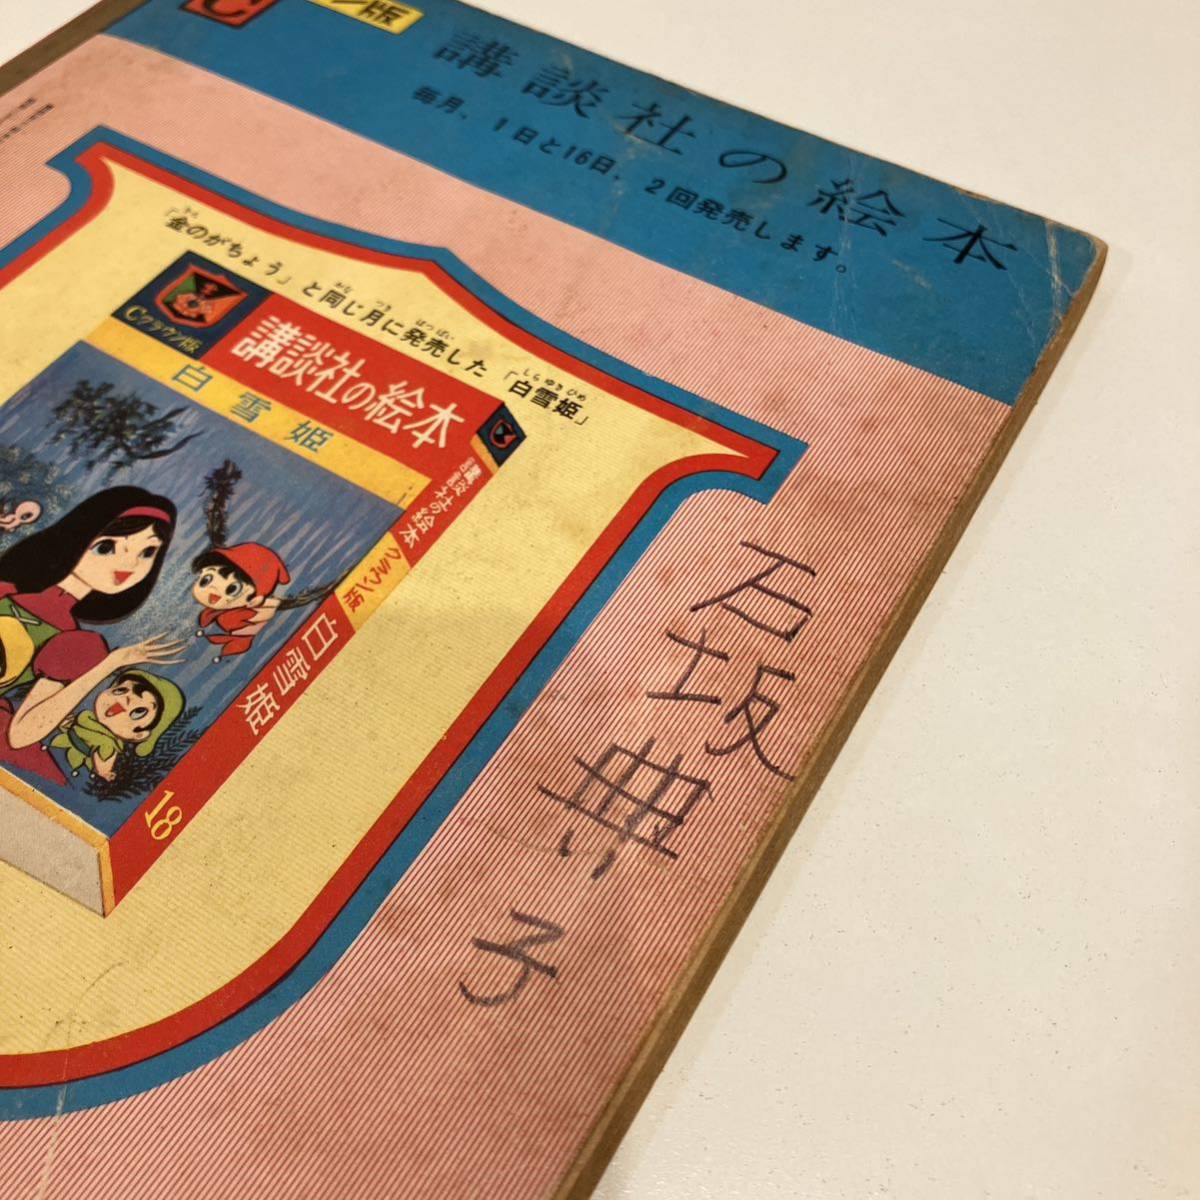 C
ン版
講談社の絵本
毎月、1日と16日、2回発売します。
「金のがちょう」と同じ月に発売した「白雪姫」
Cクラウン版
講談社の絵本
白雪姫
講談社の絵本 クラウン版
白雪姫
18
石坂典子